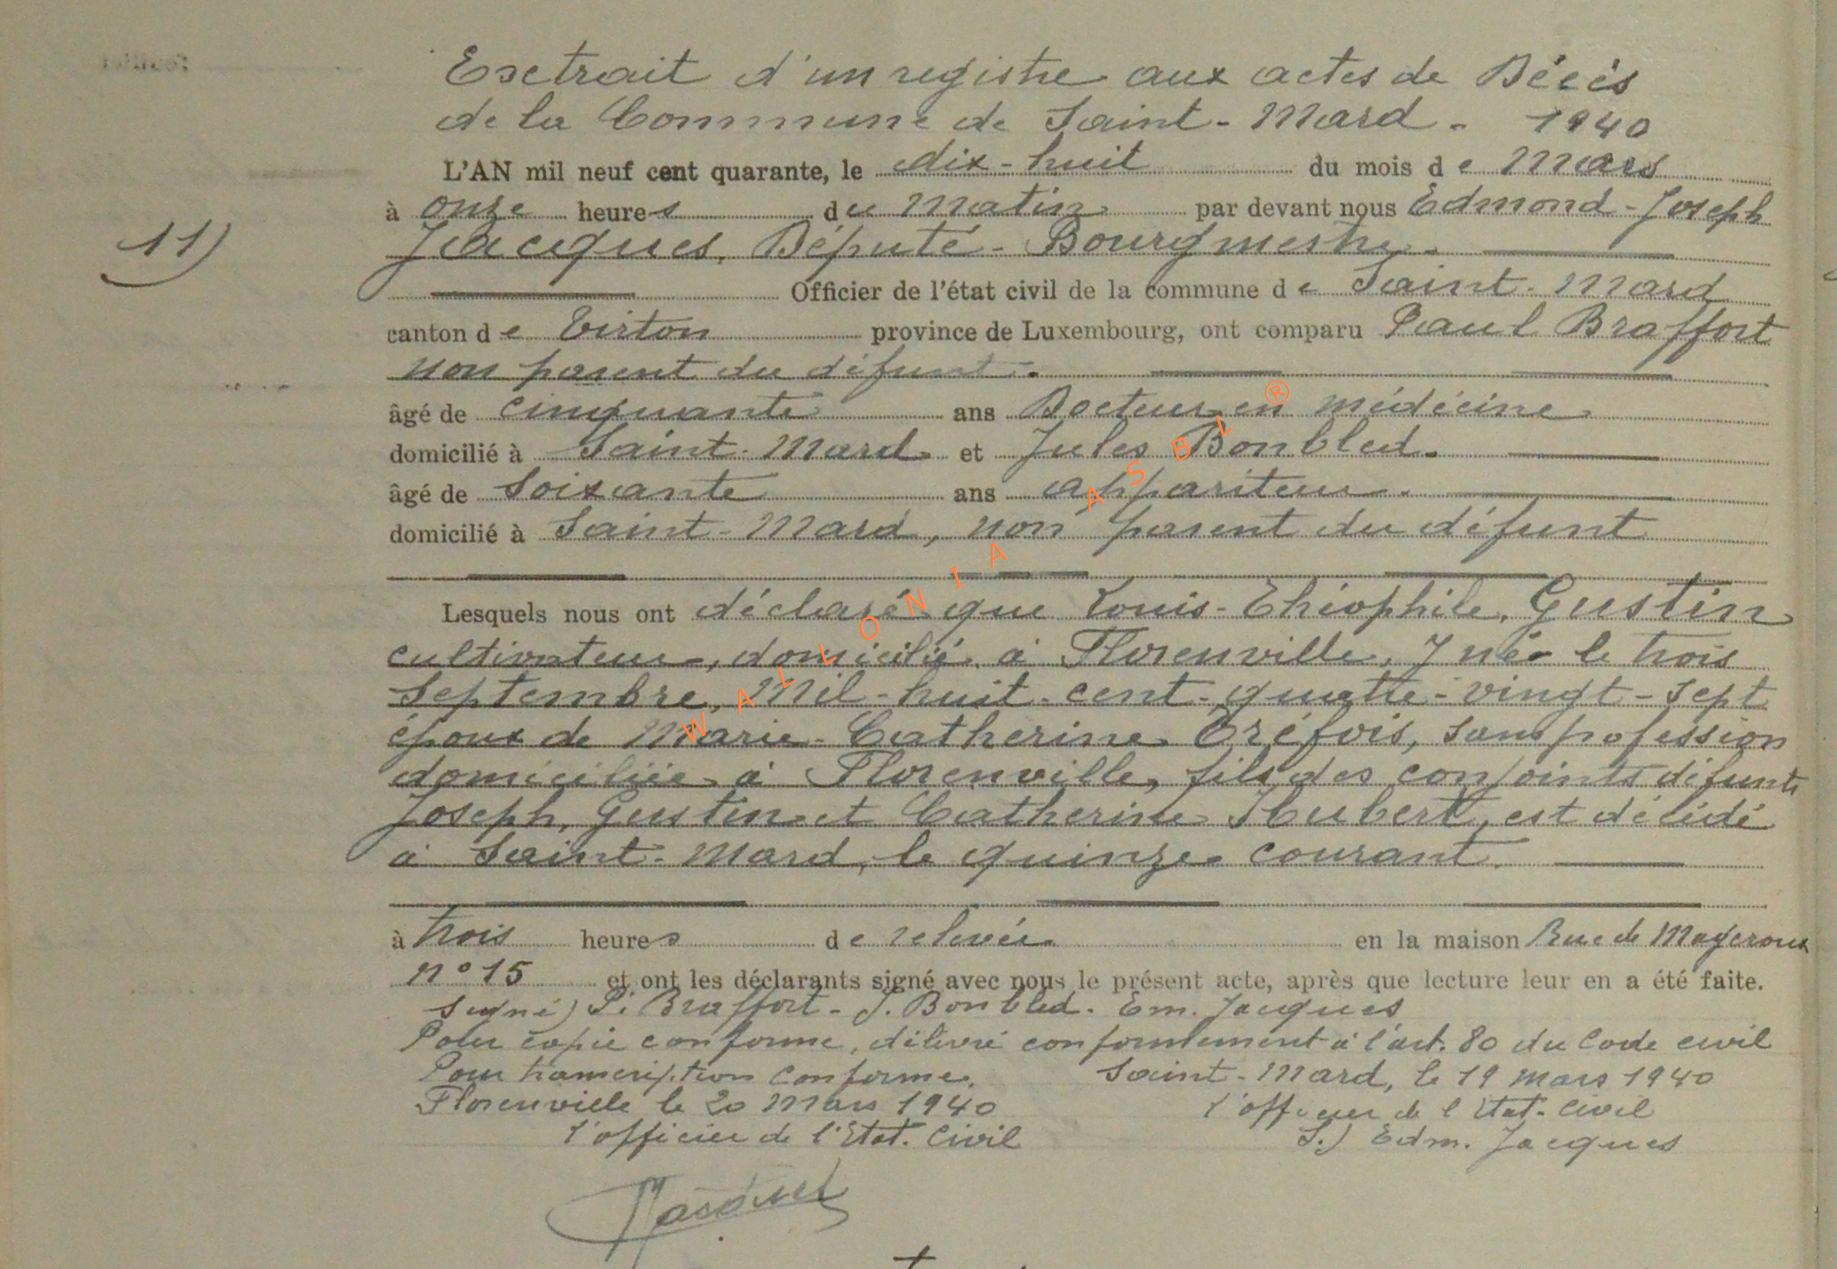 Extrait d'un registre aux actes de Décès
de la Commune de Saint-Mard - 1940
L'AN mil neuf cent quarante, le dix-huit du mois de Mars
à onze heures du Matin par devant nous Edmond-Joseph
11) Jacques, Député-Bourgmestre.
Officier de l'état civil de la commune de Saint-Mard
canton de Virton province de Luxembourg, ont comparu Paul Braffort
non parent du défunt.
âgé de cinquante ans Docteur en médécine
domicilié à Saint-Mard et Jules Bonbled.
âgé de Soixante ans appariteur.
domicilié à Saint-Mard, non parent du défunt
Lesquels nous ont déclaré que Louis-Théophile, Gustin
cultivateur, domicilié à Florenville, y né le trois
Septembre, Mil-huit-cent-quatre-vingt-sept
époux de Marie-Catherine Tréfois, sans profession
domiciliée à Florenville, fils des conjoints défunts
Joseph, Gustin et Catherine Hubert, est décédé
à Saint-Mard, le quinze courant.
à trois heures de relevée en la maison Rue de Mageroux
n° 15 et ont les déclarants signé avec nous le présent acte, après que lecture leur en a été faite.
signé) P. Braffort - J. Bonbled. Em. Jacques
Pour copie conforme, délivré conformément à l'art. 80 du Code civil
Pour transcription conforme. Saint-Mard, le 19 mars 1940
Florenville le 20 Mars 1940 l'officier de l'Etat-Civil
l'officier de l'Etat-Civil S.) Edm. Jacques
WALLONIA ASBL ®